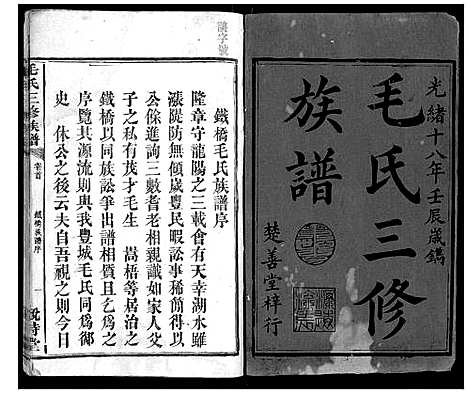 光緒十八年壬辰歲鐫
毛氏三修
族譜
楚善堂梓行
鐵橋毛氏族譜序
隆章守龍陽之三載會有天幸湖水雖
漲隄防無傾歲豊民暇訟事稀簡得以
公餘進詢三數耆老相親識如家人父
子之私有茂才毛生 嵩梧等居治之
鐵橋以同族訟爭出譜相質且乞為之
序覽其源流則與我豊城毛氏同為御
史 休公之後云夫自吾視之則今日
毛氏三修族譜
卷首
鐵橋族譜序
一
說詩堂